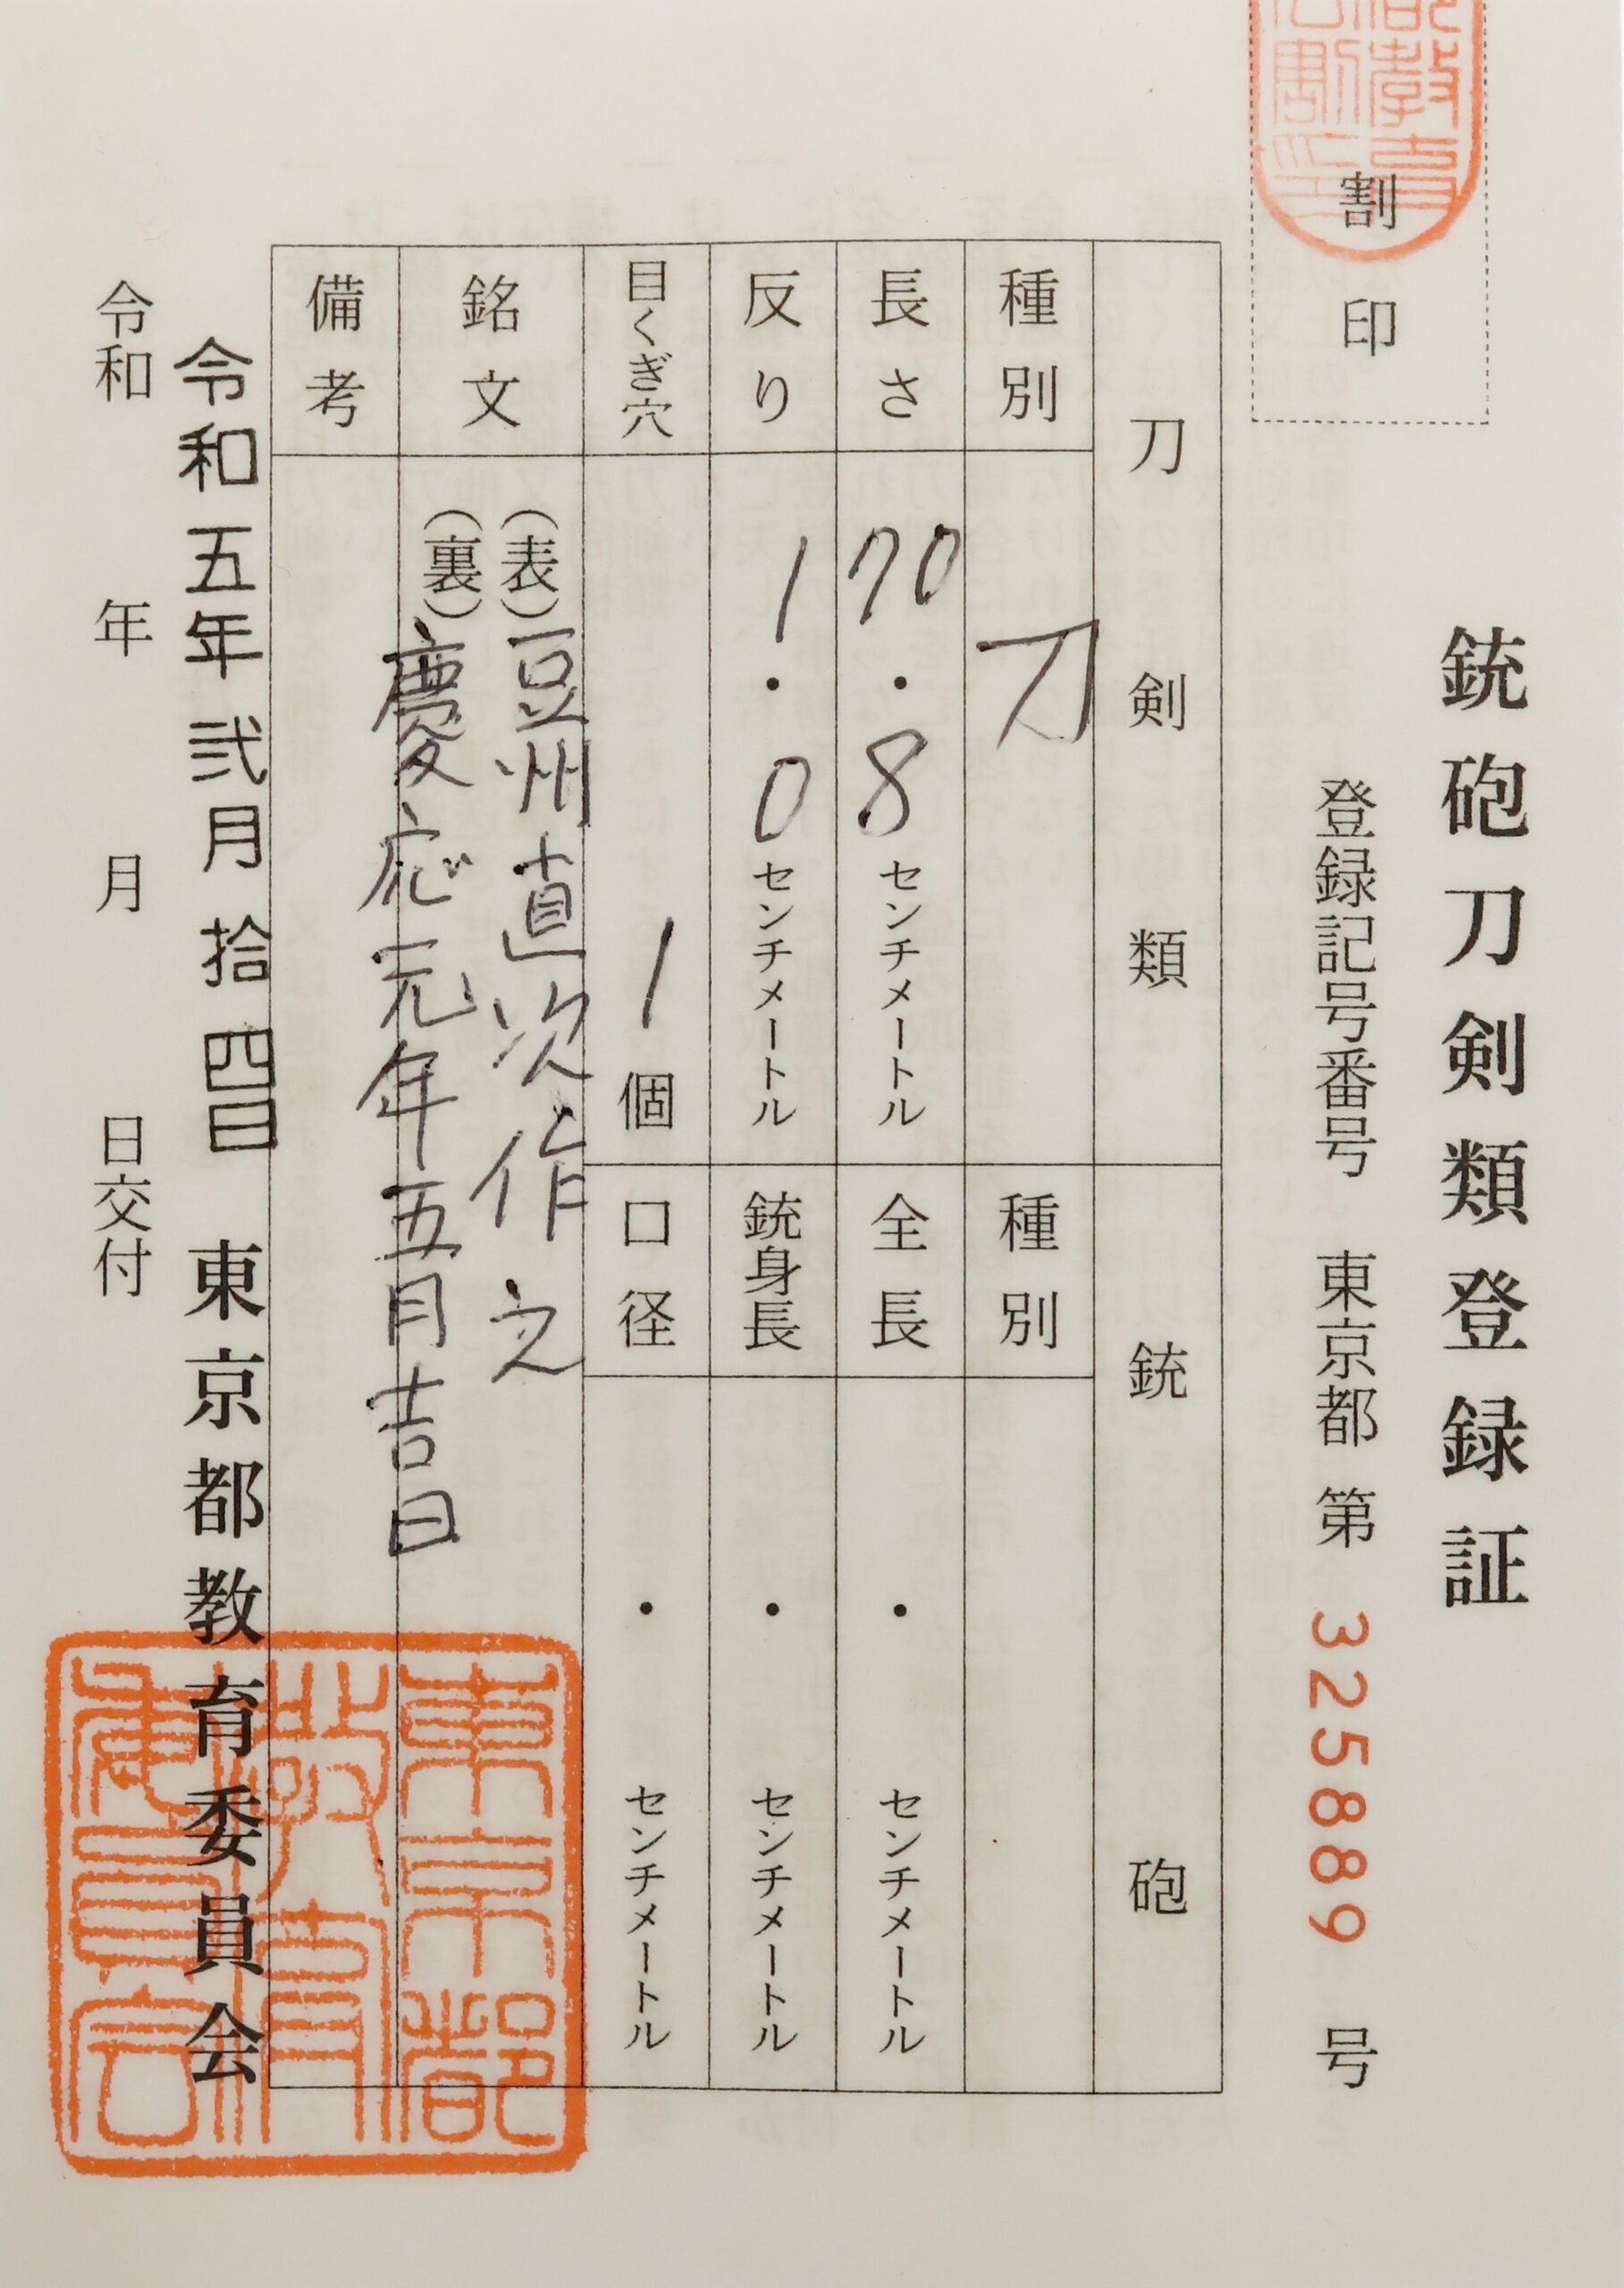 銃砲刀剣類登録証
登録記号番号 東京都 第 325889 号
割印
刀剣類
銃砲
種別 刀
種別
長さ 70.8センチメートル
全長 ・ センチメートル
反り 1.0センチメートル
銃身長 ・ センチメートル
目くぎ穴 1個
口径 ・ センチメートル
銘文
(表)豆州直次作之
(裏)慶応元年五月吉日
備考
令和五年弐月拾四日 東京都教育委員会
令和 年 月 日交付
東京都
教育
委員会